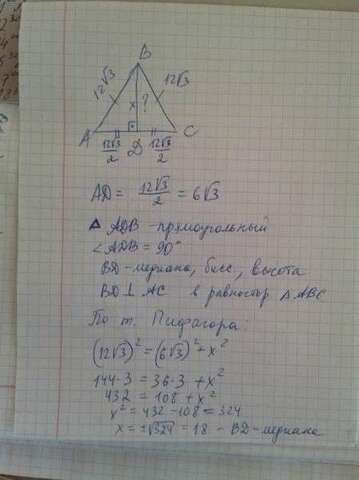 B
12√3 12√3
x ?
A D C
12√3/2 12√3/2
AD = 12√3/2 = 6√3
△ ADB - прямоугольный
∠ADB = 90°
BD - медиана, бисс., высота
BD ⊥ AC в равностор △ ABC
По т. Пифагора:
(12√3)² = (6√3)² + x²
144·3 = 36·3 + x²
432 = 108 + x²
x² = 432 - 108 = 324
x = ±√324 = 18 - BD - медиана